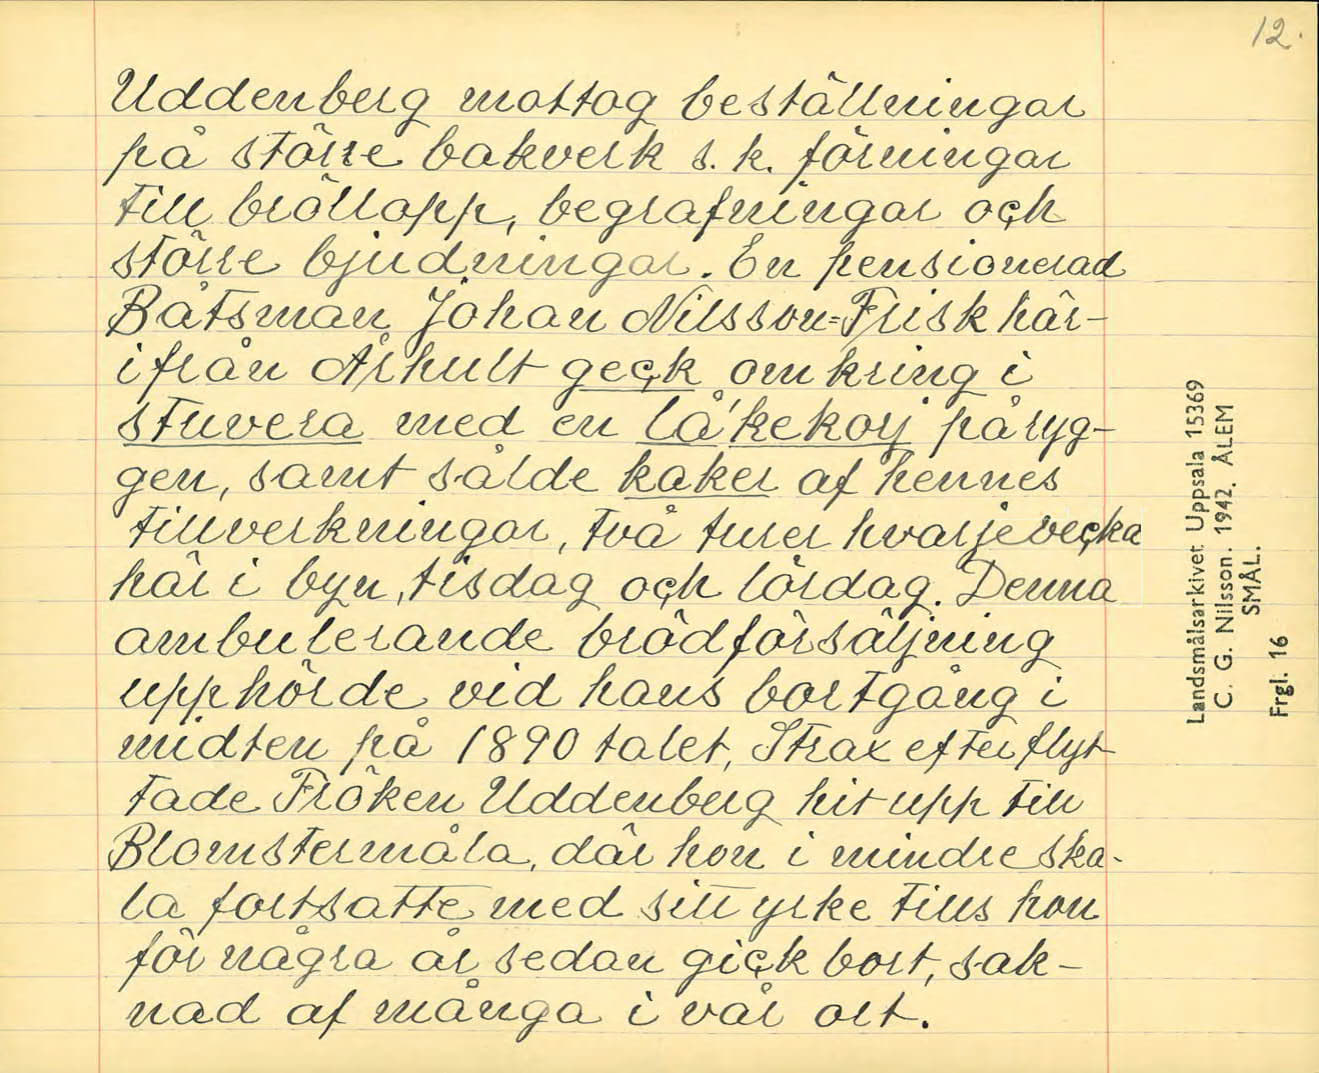 12.
Uddenberg mottog beställningar
på större bakverk s. k. förningar
till bröllopp, begrafningar och
större bjudningar. En pensionerad
Båtsman Johan Nilsson=Frisk här-
ifrån Århult geck omkring i
stuvera med en lå'kekorj på ryg-
gen, samt sålde kaker af hennes
tillverkningar, två turer hvarje vecka
här i byn, tisdag och lördag. Denna
ambulerande brödförsäljning
upphörde vid hans bortgång i
midten på 1890 talet, Strax efter flyt-
tade Fröken Uddenberg hit upp till
Blomstermåla, där hon i mindre ska-
la fortsatte med sitt yrke tills hon
för några år sedan gick bort, sak-
nad af många i vår ort.
Landsmålsarkivet Uppsala 15369
C. G. Nilsson. 1942. ÅLEM
SMÅL.
Frgl. 16